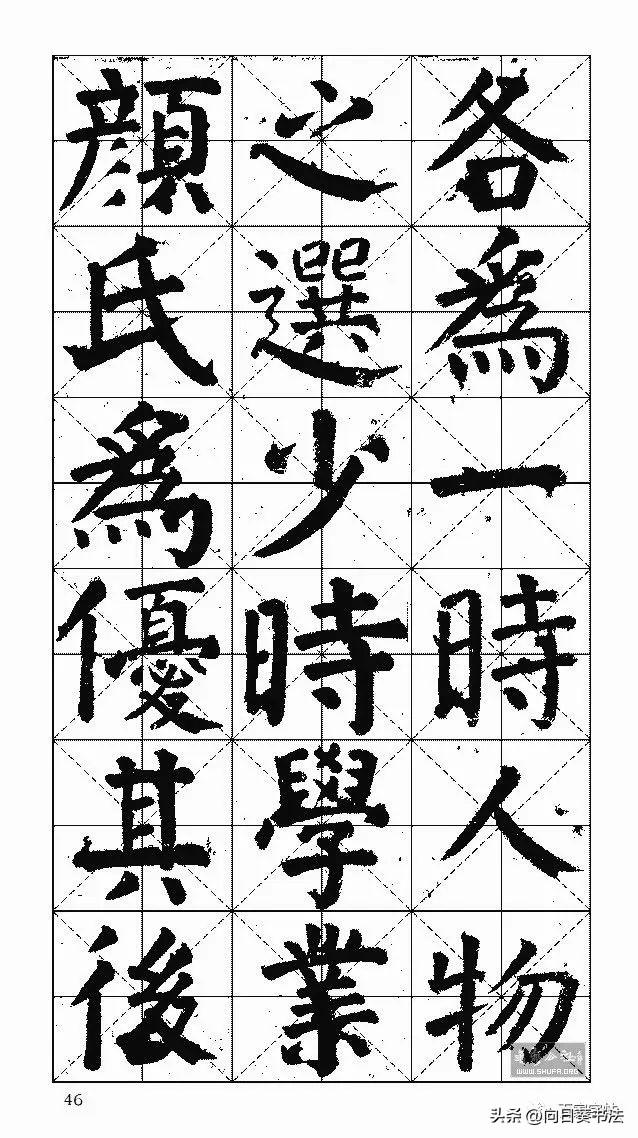 各為一時人物
之選少時學業
顔氏為優其後
46
WWW.SHUFA.ORG
头条 @向日葵书法